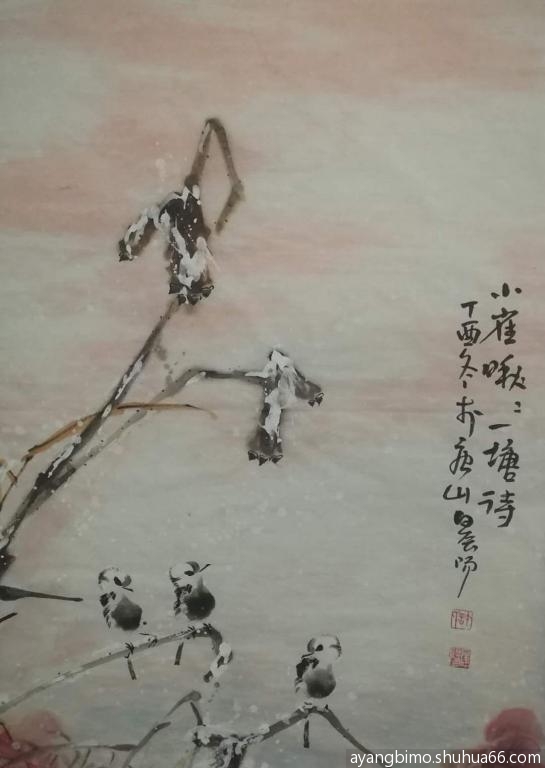 小雀啾〻一塘诗
丁酉冬於唐山
ayangbimo.shuhua66.com